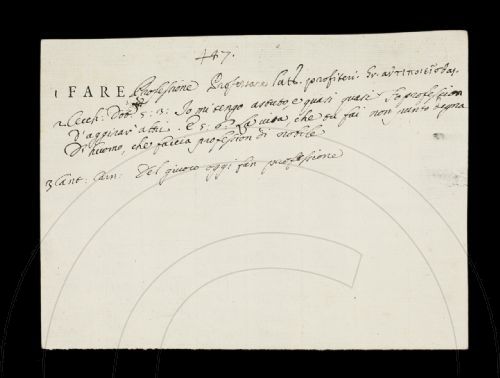 447.
1 FARE Professione Professare Lat. profiteri. Gr. αντιποιεῖσθαι.
2 Cecch: Dot: 5: 3: Io qui tengo astuto e quasi quasi fo professione
D'aggirare altri. E 5. 6. La vita che tu fai non punto degna
D'huomo, che faccia profession di nobile
3 Cant: Carn: Del giuoco oggi fan professione